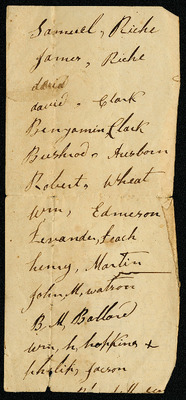 Samuel, Riche
James, Riche
david
david - Clark
Benjamin Clark
Bushrod - Ausborn
Robert, Wheat
Wm, Edmerson
Fernander, Leach
henry, Martin
John, M, watson
B. M, Ballard
wm, h, hopkins +
philip,